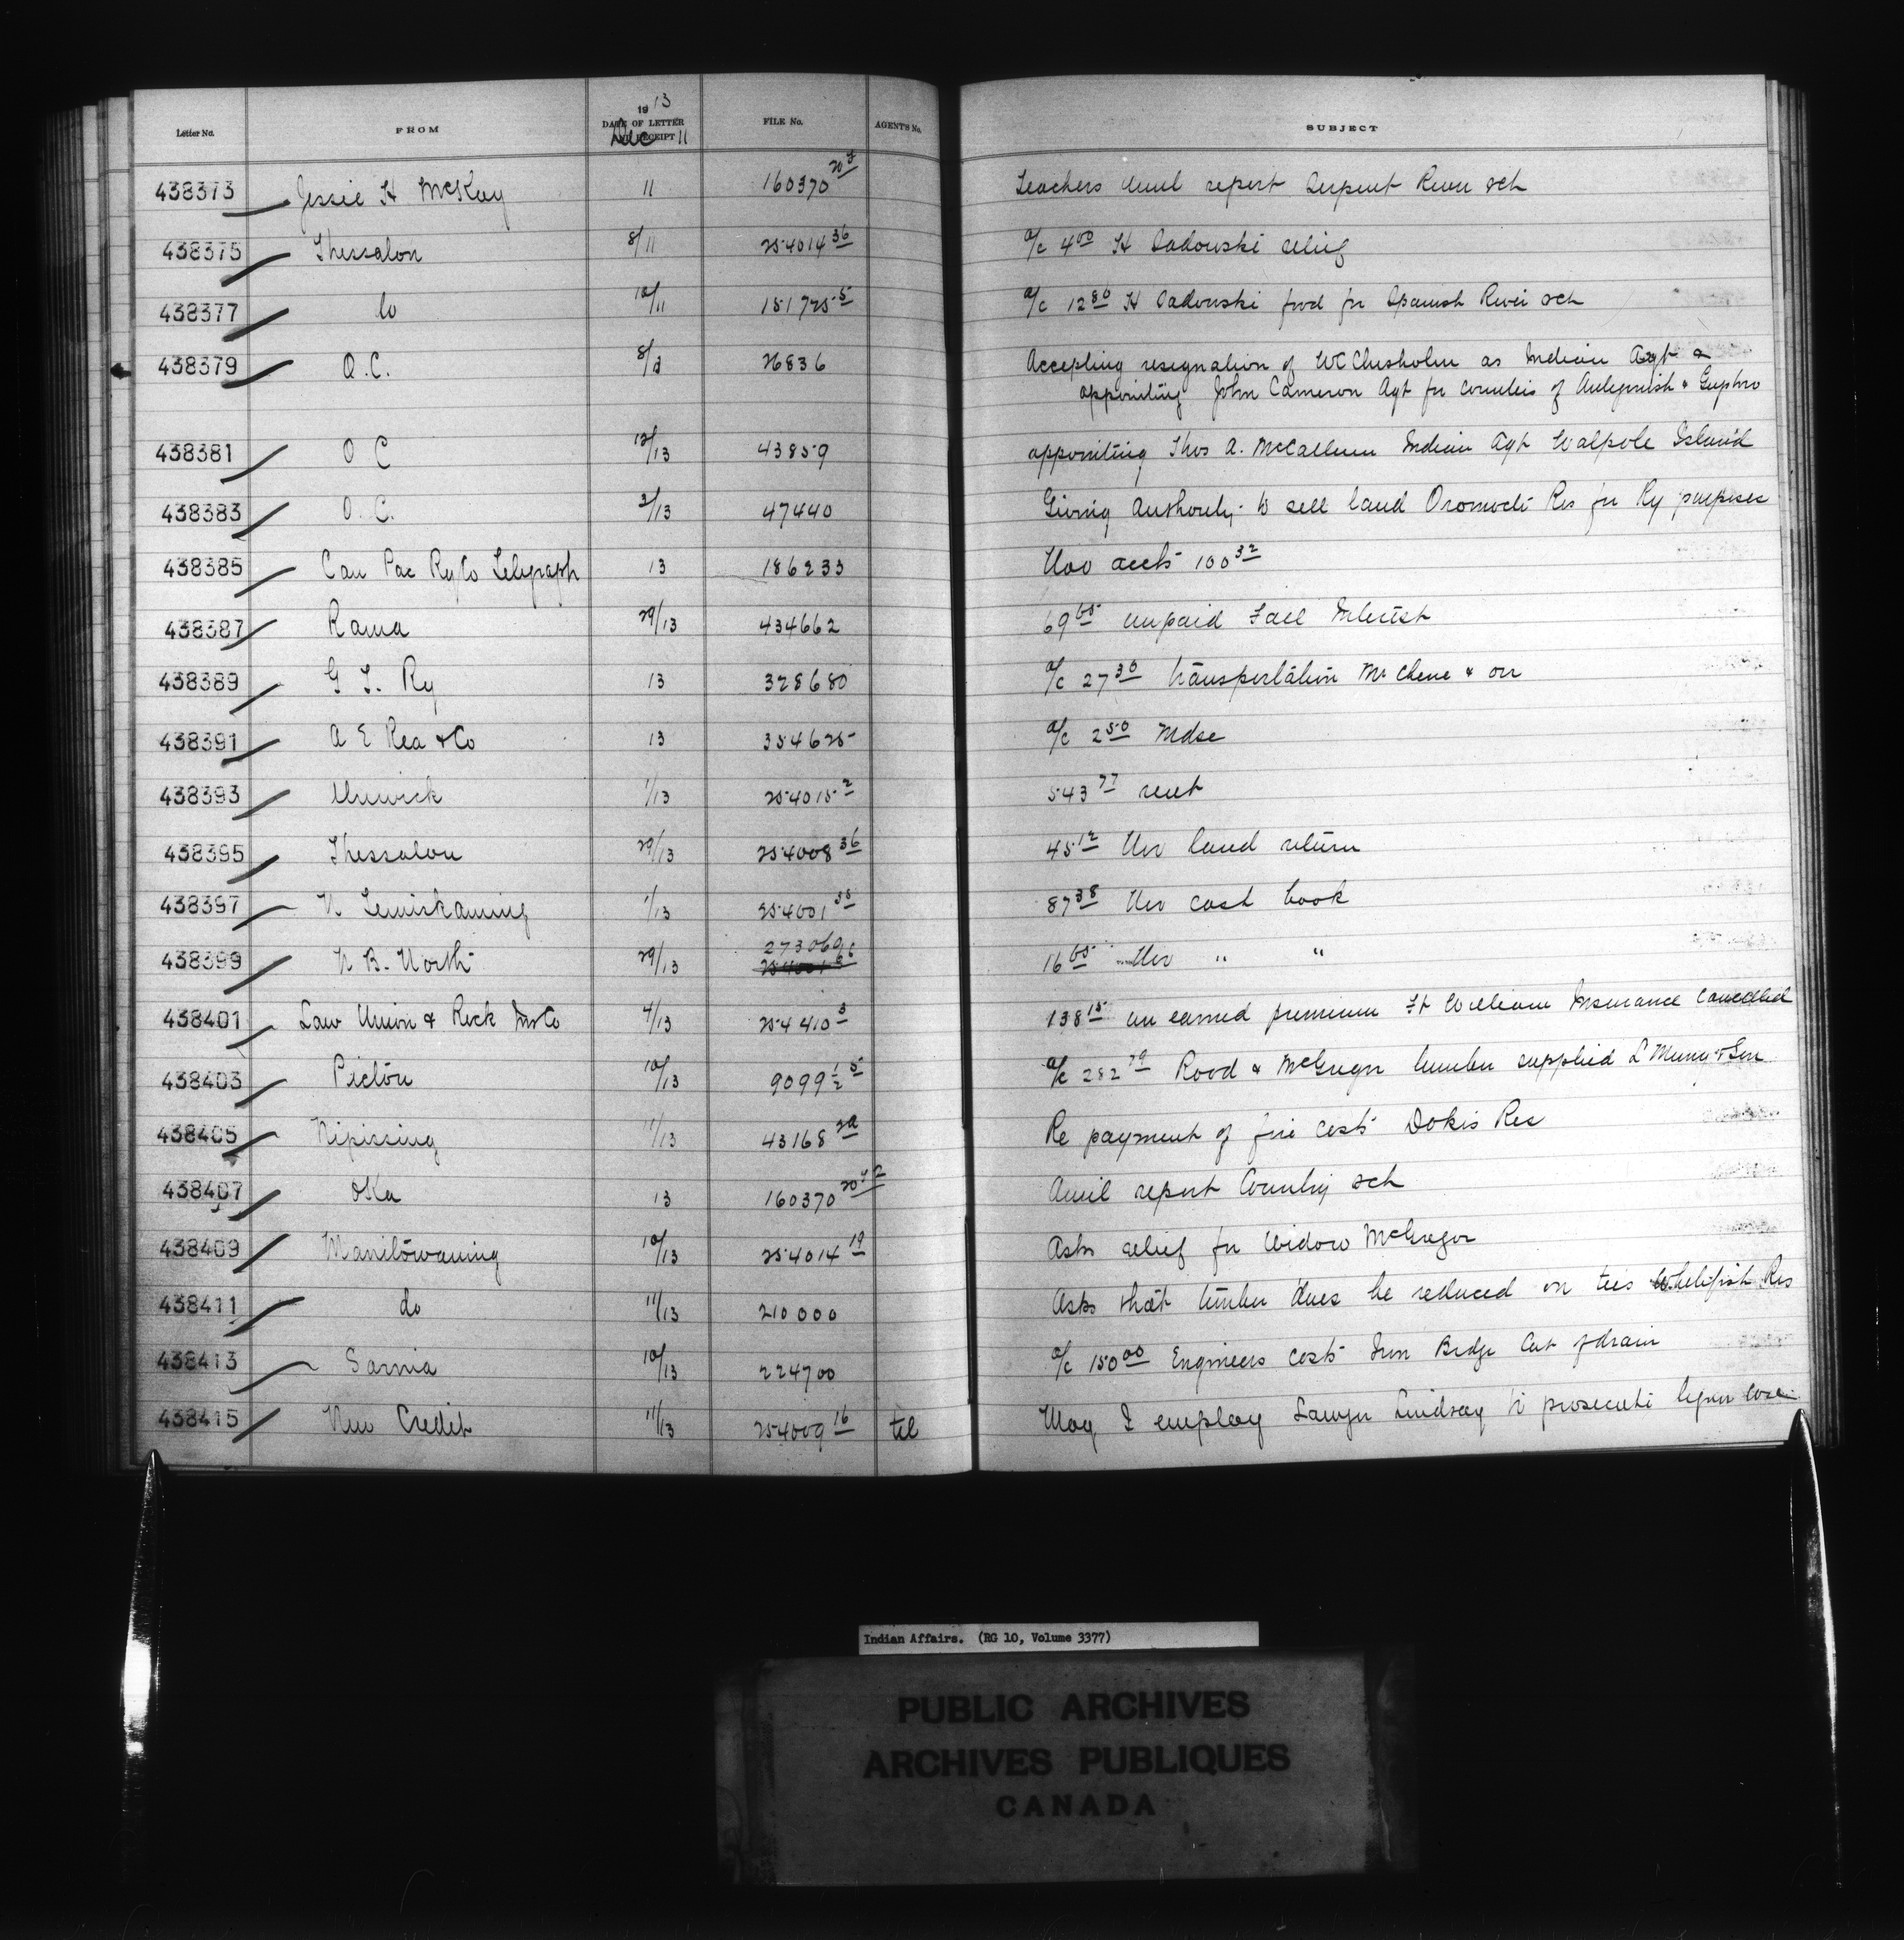 Letter No. FROM 1913 DATE OF LETTER AND RECEIPT Dec 11 FILE No. AGENT'S No. SUBJECT
438373 Jessie H McKay 11 160370 20 Teachers report Serpent River sch
438375 Thessalon 8/11 254014 36 a/c 4 00 H Sadowski relief
438377 do 10/11 151725 5 a/c 12 80 H Sadowski food for Spanish River sch
438379 O.C. 8/ 26836 Accepting resignation of WC Chisholm as Indian Agt &
appointing John Cameron Agt for counties of Antigonish & Guysboro
438381 O C 12/13 43859 appointing Thos A. McCallum Indian Agt Walpole Island
438383 O.C. 2/13 47440 Giving Authority to sell land Oromocto Res for Ry purposes
438385 Can Pac Ry Co Telegraph 13 186233 Nov accts 100 32
438387 Rama 29/13 434662 69 65 unpaid Fall Interest
438389 G T. Ry 13 328680 a/c 27 30 transportation & on
438391 A E Rea & Co 13 354625 a/c 2 50 Mdse
438393 Alnwick 1/13 254015 2 543 77 rent
438395 Thessalon 29/13 254008 36 45 12 Nov land return
438397 N Temiskaming 1/13 254001 35 87 38 Nov cash book
438399 N B. North 29/13 273069 16 65 Nov " "
438401 Law Union & Rock Ins Co 4/13 254410 3 138 15 un earned premium Ft William Insurance cancelled
438403 Pictou 10/13 9099 1/2 5 a/c 282 79 Rood & McGregor lumber supplied
438405 Nipissing 11/13 43168 2a Re payment of fire costs Dokis Res
438407 Oka 13 160370 20 report Country sch
438409 Manitowaning 10/13 254014 19 Asks relief for Widow McGregor
438411 do 11/13 210000 Asks that timber dues be reduced on ties Whitefish Res
438413 Sarnia 10/13 224700 a/c 150 00 Engineers costs Bridge Cut & drain
438415 New Credit 11/13 254009 16 tel May I employ Lawyer Lindsay to prosecute liquor case
Indian Affairs. (RG 10, Volume 3377)
PUBLIC ARCHIVES
ARCHIVES PUBLIQUES
CANADA